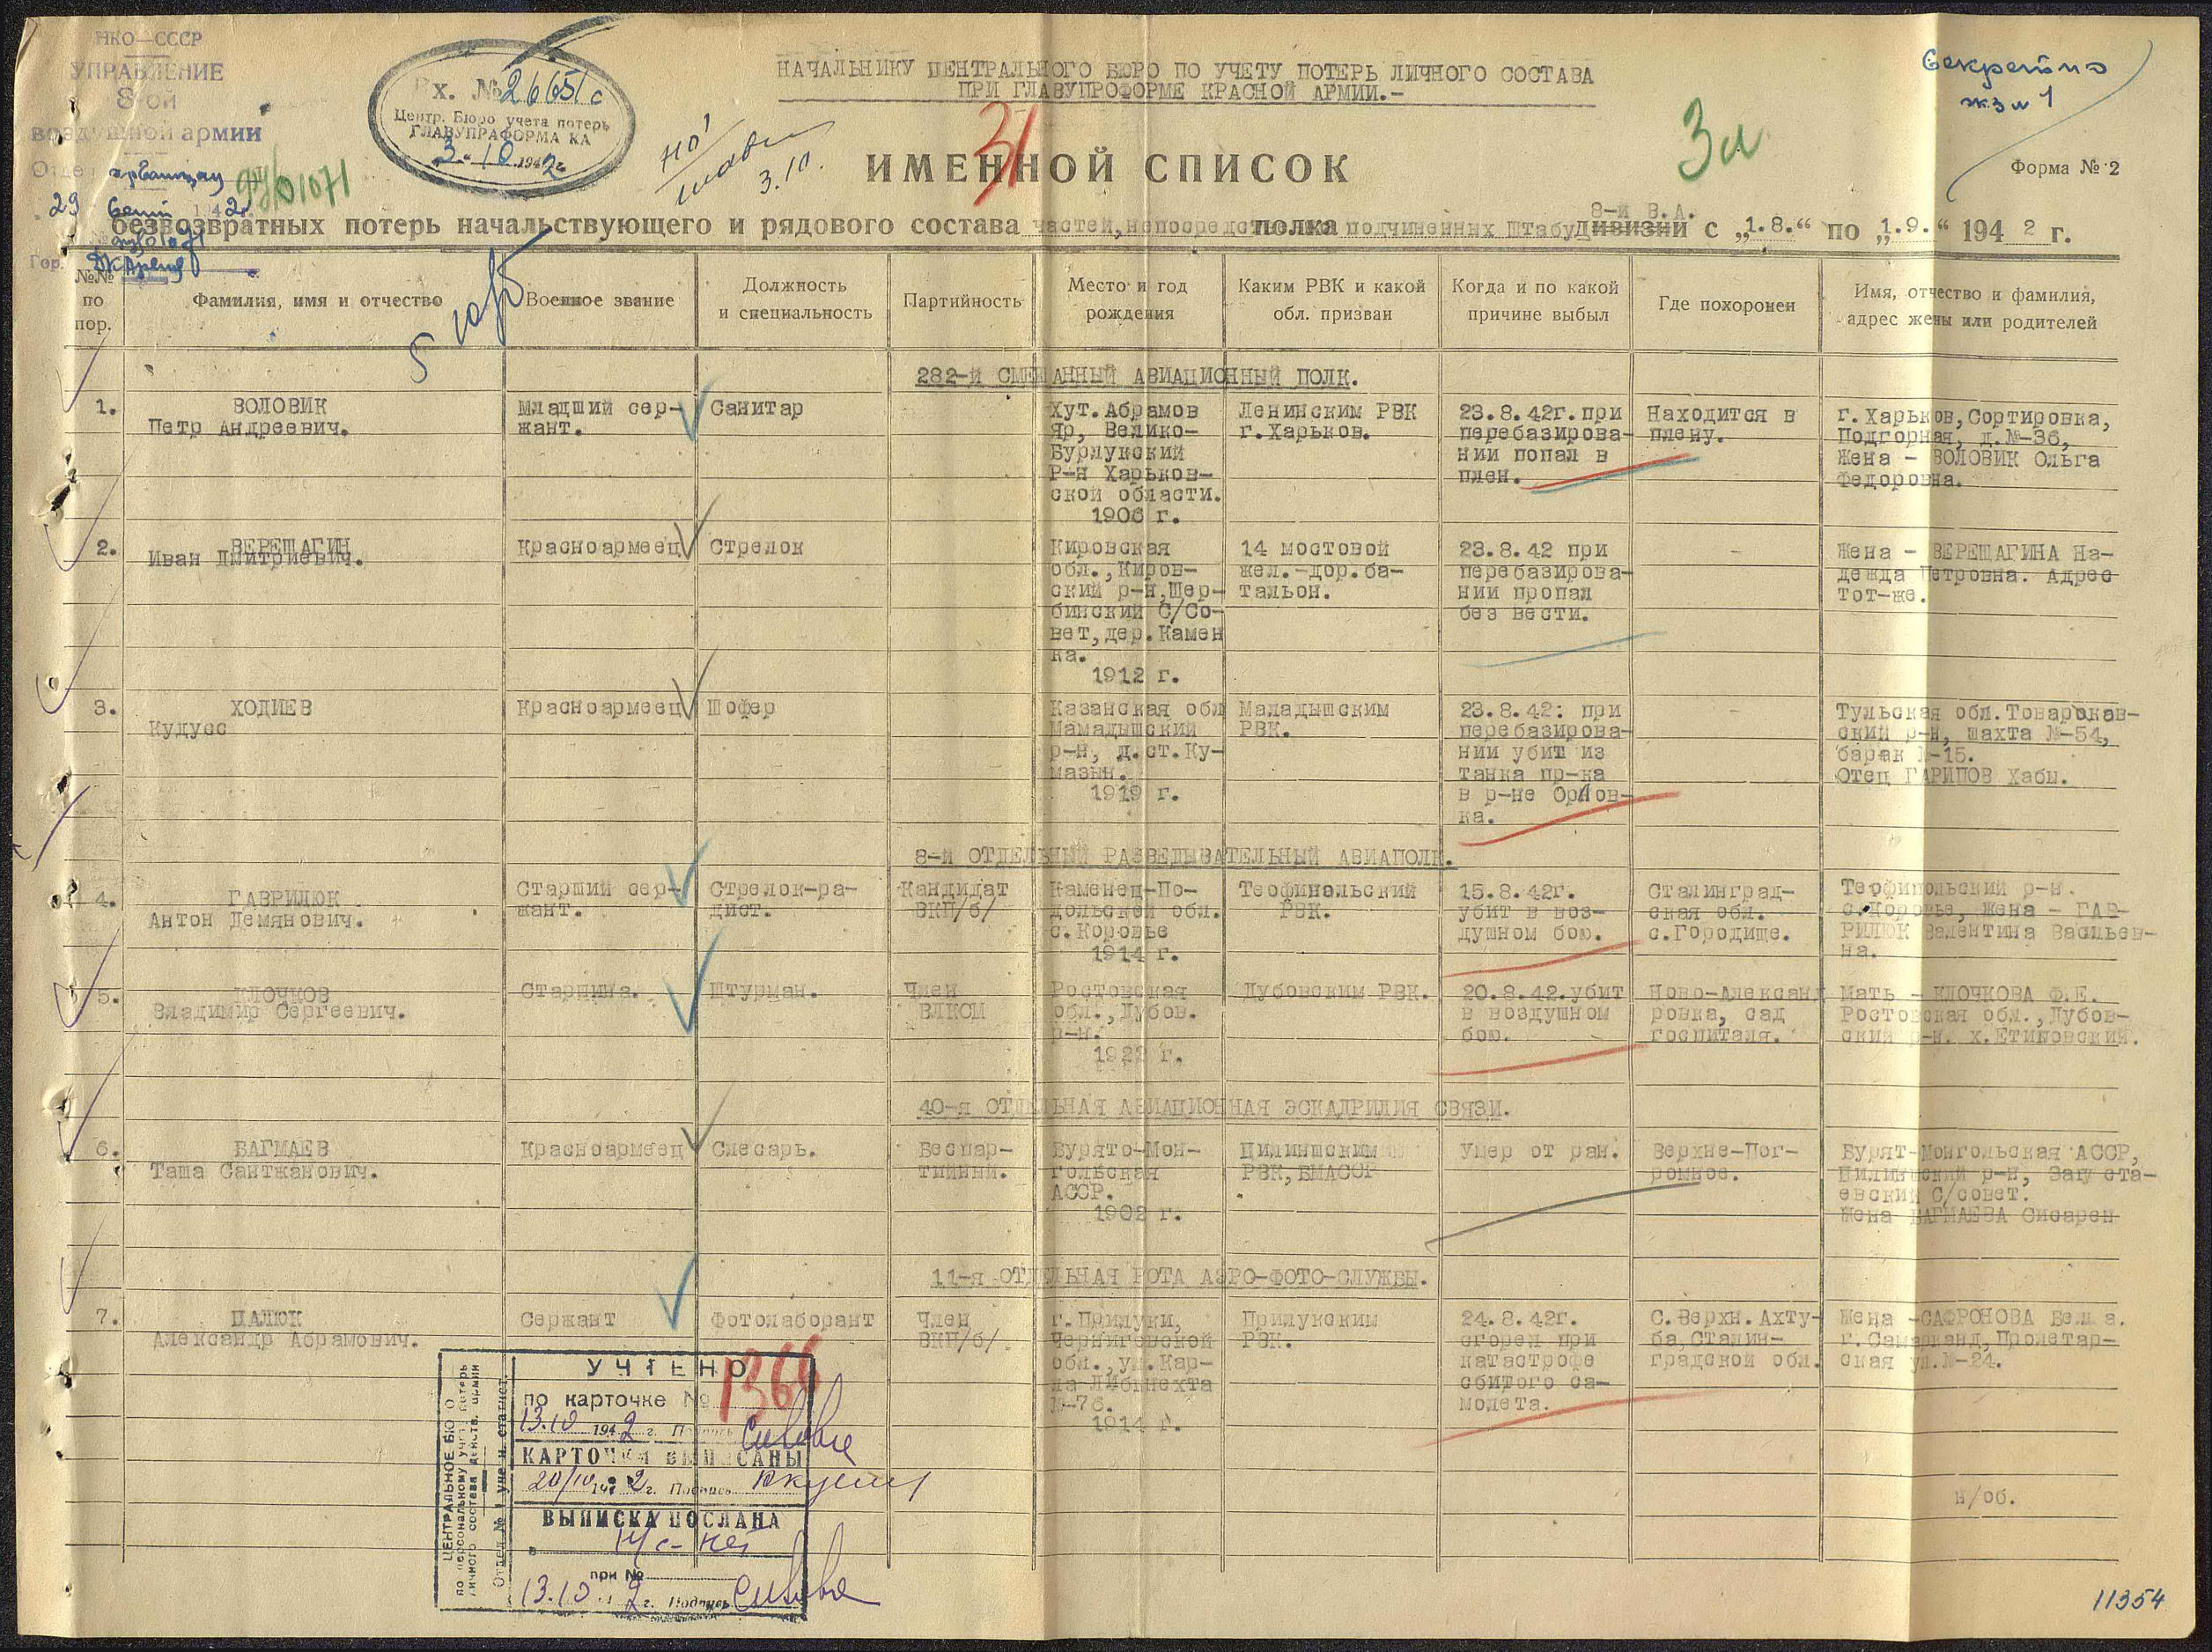 НКО—СССР
УПРАВЛЕНИЕ
8-ой
воздушной армии
Вх. № 26651с
Центр. Бюро учета потерь
ГЛАВУПРАФОРМА КА
3. 10 1942г
НАЧАЛЬНИКУ ЦЕНТРАЛЬНОГО БЮРО ПО УЧЕТУ ПОТЕРЬ ЛИЧНОГО СОСТАВА
ПРИ ГЛАВУПРОФОРМЕ КРАСНОЙ АРМИИ.-
Секретно
экз № 1
31
3л
3.10.
ИМЕННОЙ СПИСОК
Форма № 2
29 Сент 1942г
01071
безвозвратных потерь начальствующего и рядового состава частей, непосредственно полка подчиненных Штабу дивизии 8-й В.А. с „1.8.“ по „1.9.“ 1942 г.
Гор.
№№ по пор.
Фамилия, имя и отчество
Военное звание
Должность и специальность
Партийность
Место и год рождения
Каким РВК и какой обл. призван
Когда и по какой причине выбыл
Где похоронен
Имя, отчество и фамилия, адрес жены или родителей
282-й СМЕШАННЫЙ АВИАЦИОННЫЙ ПОЛК.
1.
ВОЛОВИК
Петр Андреевич.
Младший сер-
жант.
Санитар
Хут. Абрамов
Яр, Велико-
Бурлукский
Р-н Харьков-
ской области.
1906 г.
Ленинским РВК
г. Харьков.
23.8.42г. при
перебазирова-
нии попал в
плен.
Находится в
плену.
г. Харьков, Сортировка,
Подгорная, д.№-36,
Жена - ВОЛОВИК Ольга
Федоровна.
2.
ВЕРЕЩАГИН
Иван Дмитриевич.
Красноармеец
Стрелок
Кировская
обл., Киров-
ский р-н, Щер-
бинский С/Со-
вет, дер. Камен
ка.
1912 г.
14 мостовой
жел.-дор. ба-
тальон.
23.8.42 при
перебазирова-
нии пропал
без вести.
-
Жена - ВЕРЕЩАГИНА На-
дежда Петровна. Адрес
тот-же.
3.
ХОДИЕВ
Кудусс
Красноармеец
Шофер
Казанская обл
Мамадышский
р-н, д.ст. Ку-
мазын.
1919 г.
Маладышским
РВК.
23.8.42: при
перебазирова-
нии убит из
танка пр-ка
в р-не Орлов-
ка.
-
Тульская обл. Товарков-
ский р-н, шахта №-54,
барак №-15.
Отец ГАРИПОВ Хабы.
8-й ОТДЕЛЬНЫЙ РАЗВЕДЫВАТЕЛЬНЫЙ АВИАПОЛК.
4.
ГАВРИЛЮК
Антон Демянович.
Старший сер-
жант.
Стрелок-ра-
дист.
Кандидат
ВКП/б/
Каменец-По-
дольской обл.
с. Коровье
1914 г.
Теофипольский
РВК.
15.8.42г.
убит в воз-
душном бою.
Сталинград-
ская обл.
с. Городище.
Теофипольский р-н.
с. Коровье, Жена - ГАВ-
РИЛЮК Валентина Васильев-
на.
5.
КЛОЧКОВ
Владимир Сергеевич.
Старшина.
Штурман.
Член
ВЛКСМ
Ростовская
обл., Дубов.
р-н.
1922 г.
Дубовским РВК.
20.8.42. убит
в воздушном
бою.
Ново-Александ
ровка, сад
госпиталя.
Мать - КЛОЧКОВА Ф.Е.
Ростовская обл., Дубов-
ский р-н. х. Етиковский.
40-я ОТДЕЛЬНАЯ АВИАЦИОННАЯ ЭСКАДРИЛИЯ СВЯЗИ.
6.
БАГМАЕВ
Таша Сантжанович.
Красноармеец
Слесарь.
Беспар-
тийный.
Бурято-Мон-
гольская
АССР.
1902 г.
Цилиншским
РВК, БМАССР
Умер от ран.
Верхне-Пог-
ромное.
Бурят-Монгольская АССР,
Цилинский р-н, Загуста-
евский С/совет.
Жена БАГМАЕВА Сисарен
11-я ОТДЕЛЬНАЯ РОТА АЭРО-ФОТО-СЛУЖБЫ.
7.
ЦАЛЮК
Александр Абрамович.
Сержант
Фотолаборант
Член
ВКП/б/
г. Прилуки,
Черниговской
обл., ул. Кар-
ла Либкнехта
№-76.
1914 г.
Прилукским
РВК.
24.8.42г.
сгорел при
катастрофе
сбитого са-
молета.
С. Верхн. Ахту-
ба, Сталин-
градской обл.
Жена - САФРОНОВА Белла.
г. Самарканд, Пролетар-
ская ул.№-24.
ЦЕНТРАЛЬНОЕ БЮРО
по персональному учету потерь
личного состава действ. армии
УЧТЕНО
по карточке № 1366
13.10 1942 г. Подпись
КАРТОЧКИ ВЫПИСАНЫ
20/10 1942 г. Подпись
ВЫПИСКА ПОСЛАНА
в
при №
13.10 42 г. Подпись
н/об.
11354